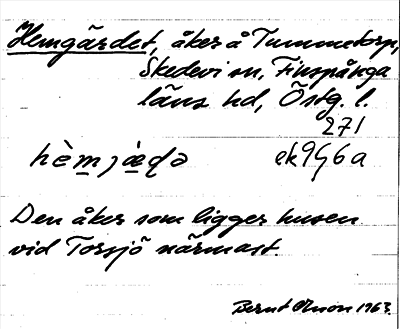 Hemgärdet, åker å Tummetorp,
Skedevi sn, Finspånga
läns hd, Östg. l.
271
hè̀mjæ̀ɖə ek 9G6a
Den åker som ligger husen
vid Torsjö närmast.
Bernt Olson 1963.